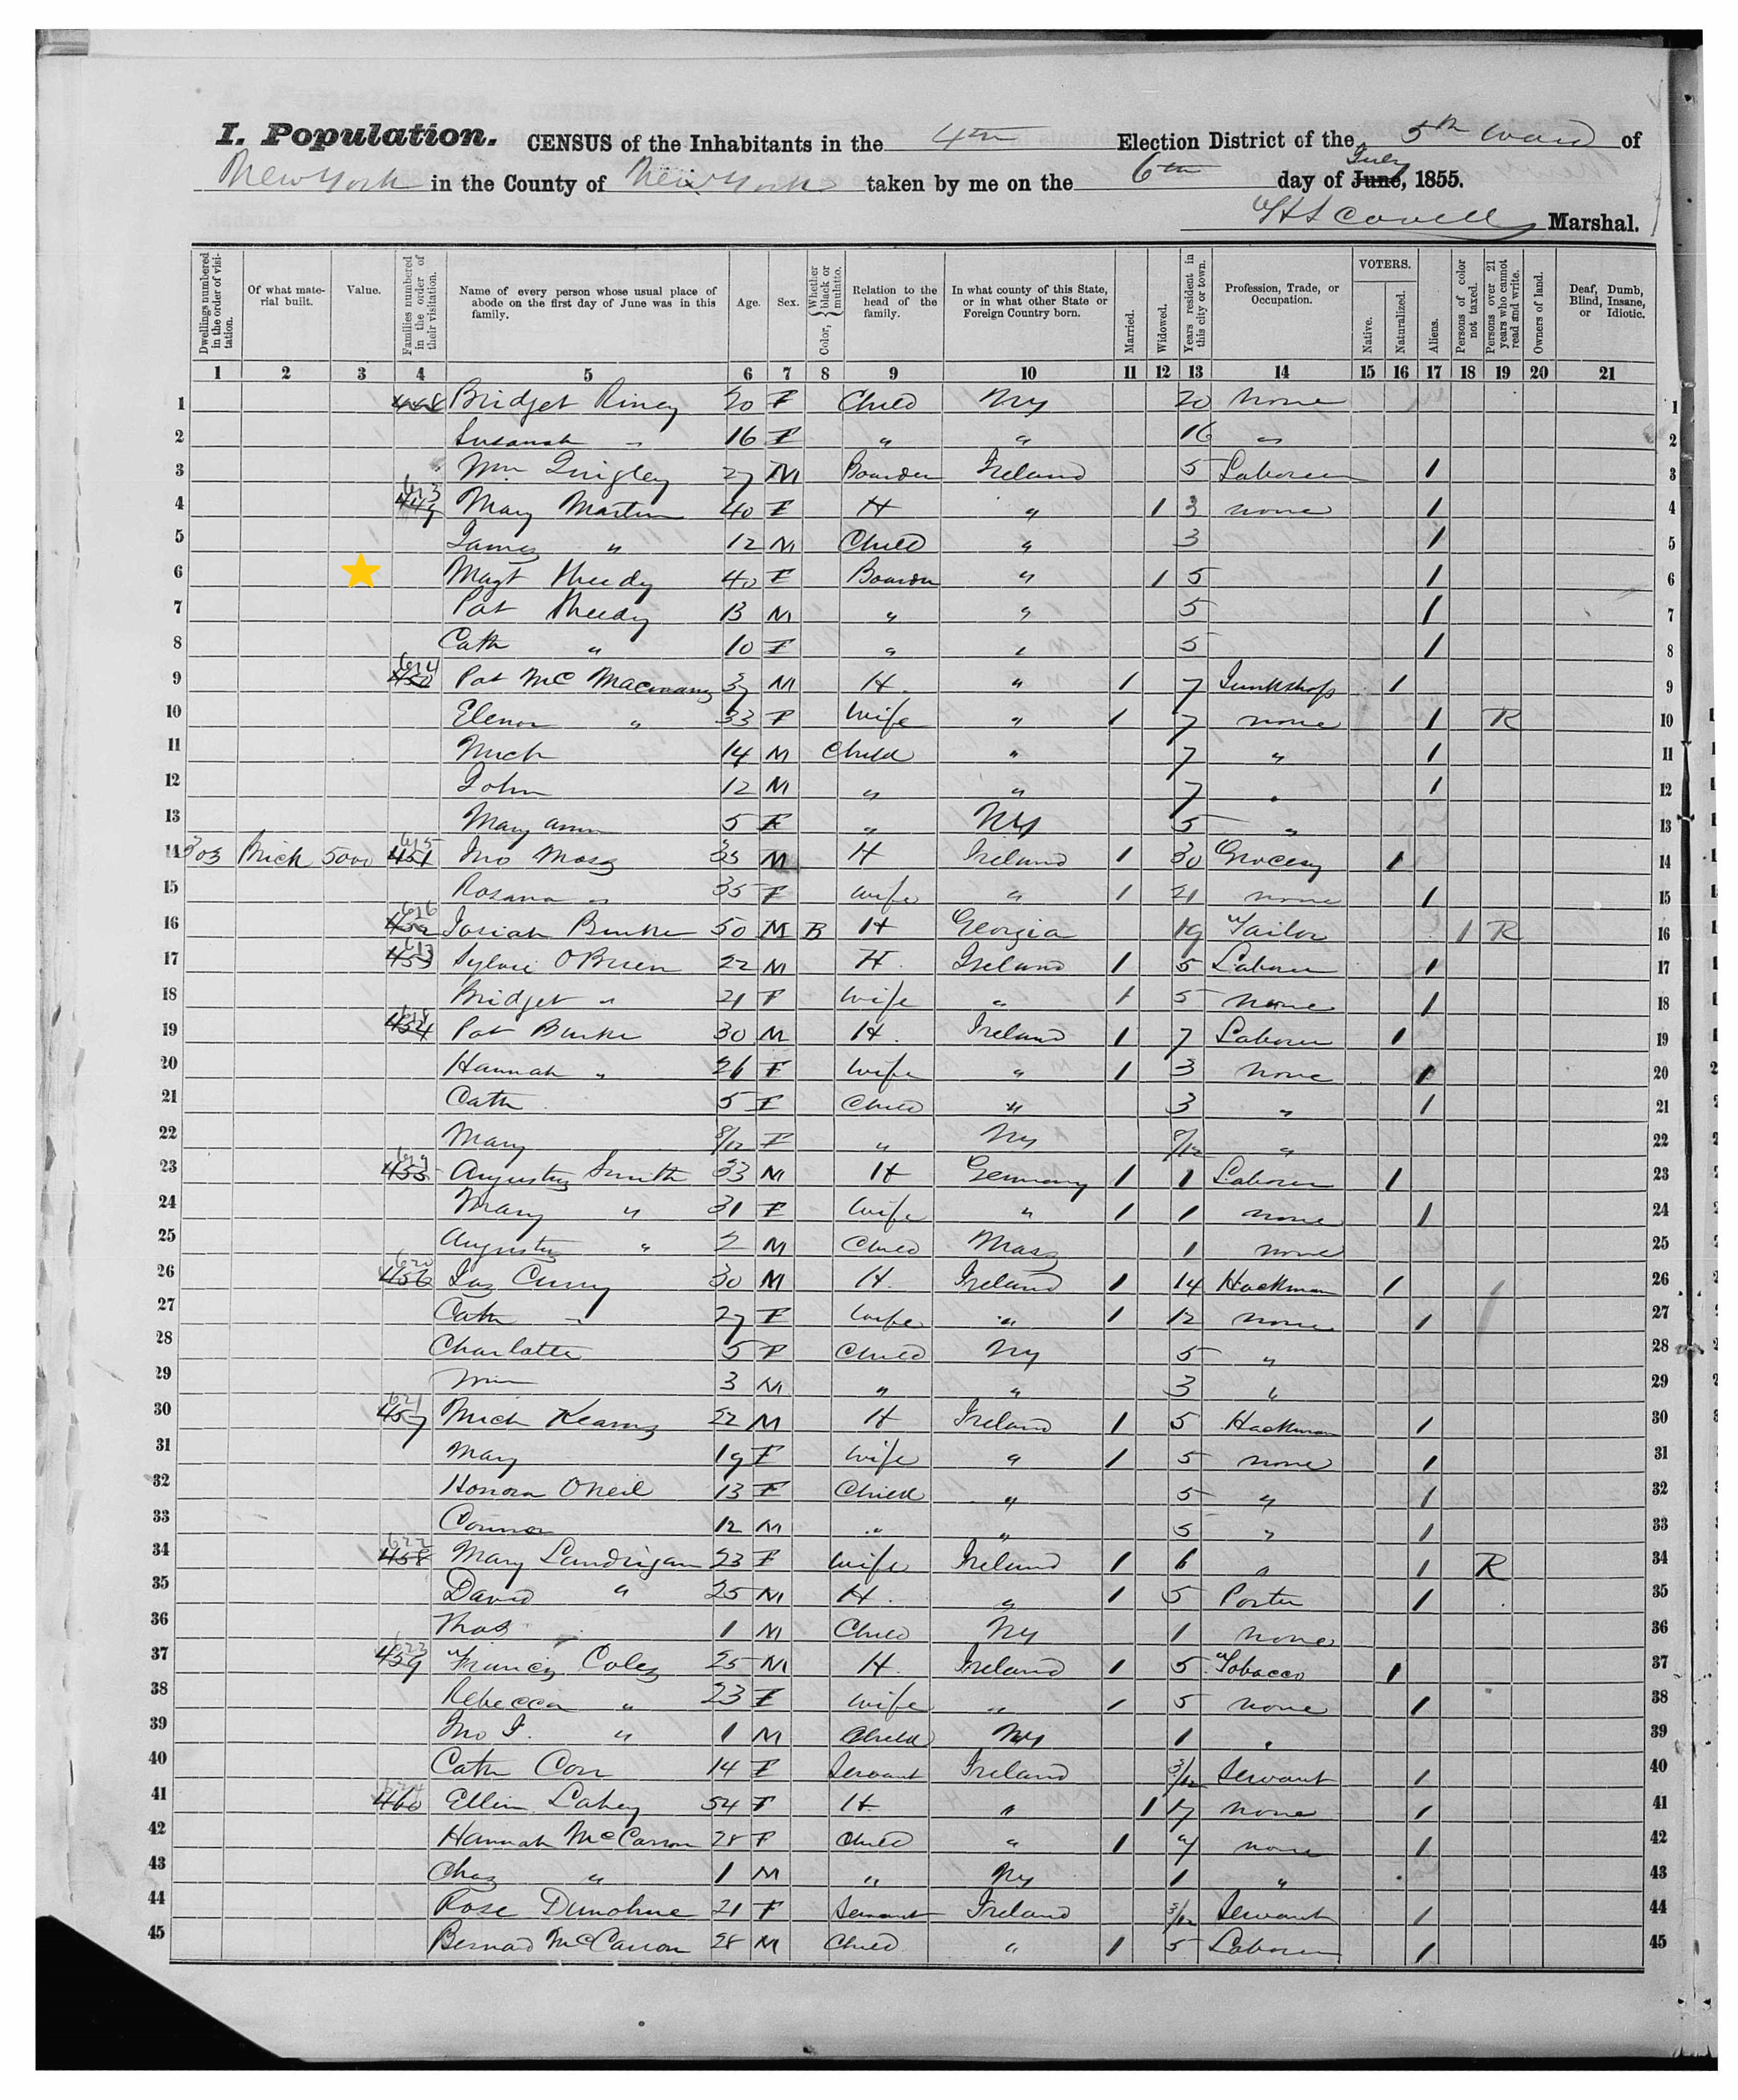 I. Population. CENSUS of the Inhabitants in the 4th Election District of the 5th Ward of
New York in the County of New York taken by me on the 6th day of June, July 1855.
Marshal.
Dwellings numbered in the order of visitation. Of what material built. Value. Families numbered in the order of their visitation. Name of every person whose usual place of abode on the first day of June was in this family. Age. Sex. Color, Whether black or mulatto. Relation to the head of the family. In what county of this State, or in what other State or Foreign Country born. Married. Widowed. Years resident in this city or town. Profession, Trade, or Occupation. VOTERS. Native. Naturalized. Aliens. Persons of color not taxed. Persons over 21 years who cannot read and write. Owners of land. Deaf, Dumb, Blind, Insane, or Idiotic.
1 2 3 4 5 6 7 8 9 10 11 12 13 14 15 16 17 18 19 20 21
1 448 Bridget Riney 20 F Child NY 20 none 1
2 Susanah " 16 F " " 16 " 2
3 Wm Quigley 27 M Boarder Ireland 5 Laborer 1 3
4 613 449 Mary Martin 40 F H " 1 3 none 1 4
5 James " 12 M Child " 3 1 5
6 Magt 40 F Boarder " 1 5 1 6
7 Pat 13 M " " 5 1 7
8 Cath " 10 F " " 5 1 8
9 614 450 Pat Mc 37 M H. " 1 7 Junkshop 1 9
10 Elenor " 33 F Wife " 1 7 none 1 R 10
11 Mich 14 M Child " 7 " 1 11
12 John 12 M " " 7 " 1 12
13 Mary Ann 5 F " NY 5 " 13
14 303 Brick 5000 615 451 Jno 35 M H Ireland 1 30 Grocery 1 14
15 Rosana " 35 F Wife " 1 21 none 1 15
16 616 452 Josiah Burke 50 M B H Georgia 19 Tailor 1 R 16
17 453 OBrien 22 M H. Ireland 1 5 Laborer 1 17
18 Bridget " 21 F Wife " 1 5 None 1 18
19 618 454 Pat Burke 30 M H. Ireland 1 7 Laborer 1 19
20 Hannah " 26 F Wife " 1 3 None 1 20
21 Cath 5 F Child " 3 " 1 21
22 Mary 8/12 F " NY 8/12 " 22
23 619 455 Augustus Smith 33 M H Germany 1 1 Laborer 1 23
24 Mary " 31 F Wife " 1 1 none 1 24
25 Augustus " 2 M Child Mass 1 none 25
26 620 456 Jas Curry 30 M H. Ireland 1 14 Hackman 1 26
27 Cath " 27 F Wife " 1 12 none 1 27
28 Charlotte 5 F Child NY 5 " 28
29 Wm 3 M " " 3 " 29
30 621 457 Mich Kearns 22 M H Ireland 1 5 Hackman 1 30
31 Mary 19 F Wife " 1 5 none 1 31
32 Honora ONeil 13 F Child " 5 " 1 32
33 Connor 12 M " " 5 " 1 33
34 622 458 Mary Landrigan 23 F Wife Ireland 1 6 " 1 R 34
35 David " 25 M H. " 1 5 Porter 1 35
36 Thos 1 M Child NY 1 none 36
37 623 459 Francis Coles 25 M H. Ireland 1 5 Tobacco 1 37
38 Rebecca " 23 F Wife " 1 5 none 1 38
39 Jno F. " 1 M Child NY 1 " 39
40 Cath Corr 14 F Servant Ireland 3/12 Servant 1 40
41 624 460 Ellen Lahey 54 F H. " 1 17 none 1 41
42 Hannah McCarron 28 F Child " 1 none 1 42
43 Chas " 1 M " NY 1 " 43
44 Rose Dunohue 21 F Servant Ireland 3/12 Servant 1 44
45 Bernard McCarron 28 M Child " 1 5 Laborer 1 45